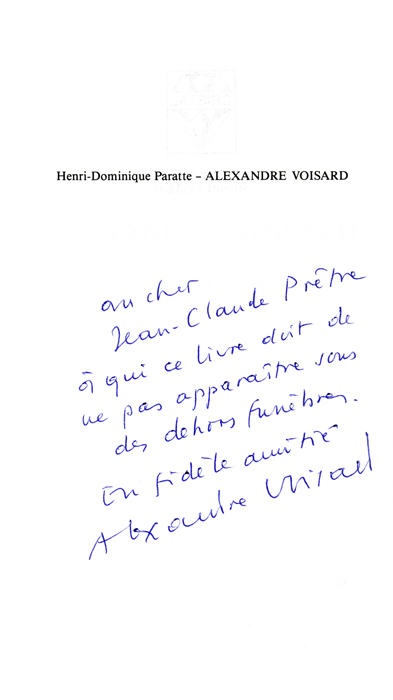 Henri-Dominique Paratte – ALEXANDRE VOISARD
au cher
Jean-Claude Prêtre
à qui ce livre doit de
ne pas apparaître sous
des dehors funèbres.
En fidèle amitié
Alexandre Voisard